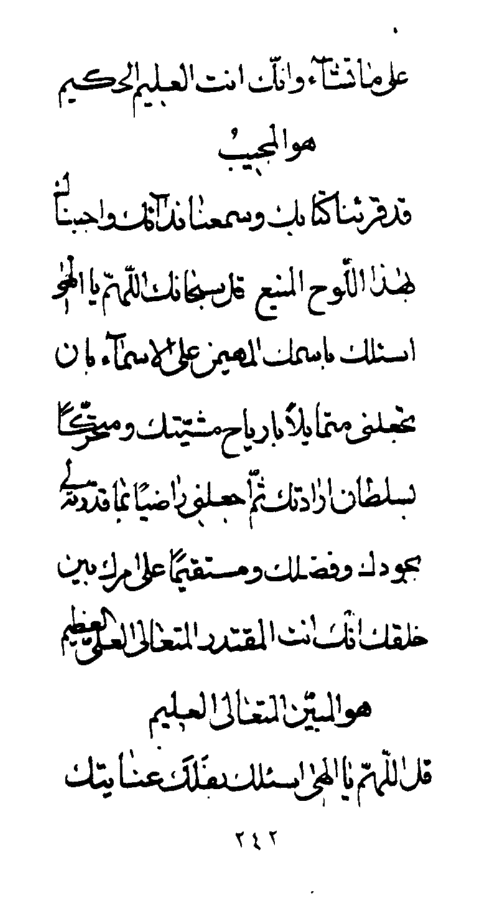 على ما تشآء وانّك انت العليم الحكيم
هو المجيبُ
قد قرئنا كتابك وسمعنا ندآئك واجبناك
بهذا اللّوح المنيع قل سبحانك اللّهمّ يا الهي
اسئلك باسمك المهيمن على الاسمآء بان
تجعلني متمايلاً بارياح مشيّتك ومتحرّكاً
بسلطان ارادتك ثمّ اجعلني راضياً بما قدّرته لي
بجودك وفضلك ومستقيماً على امرك بين
خلقك انّك انت المقتدر المتعالي العليّ العظيم
هو المبيّن المتعالي العليم
قل اللّهمّ يا الهي اسئلك بفلك عنايتك
٢٤٢